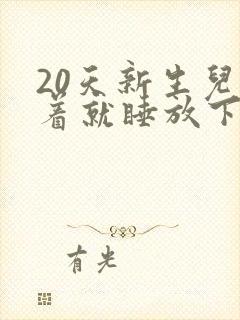 20天新生兒
着就睡放下
有光